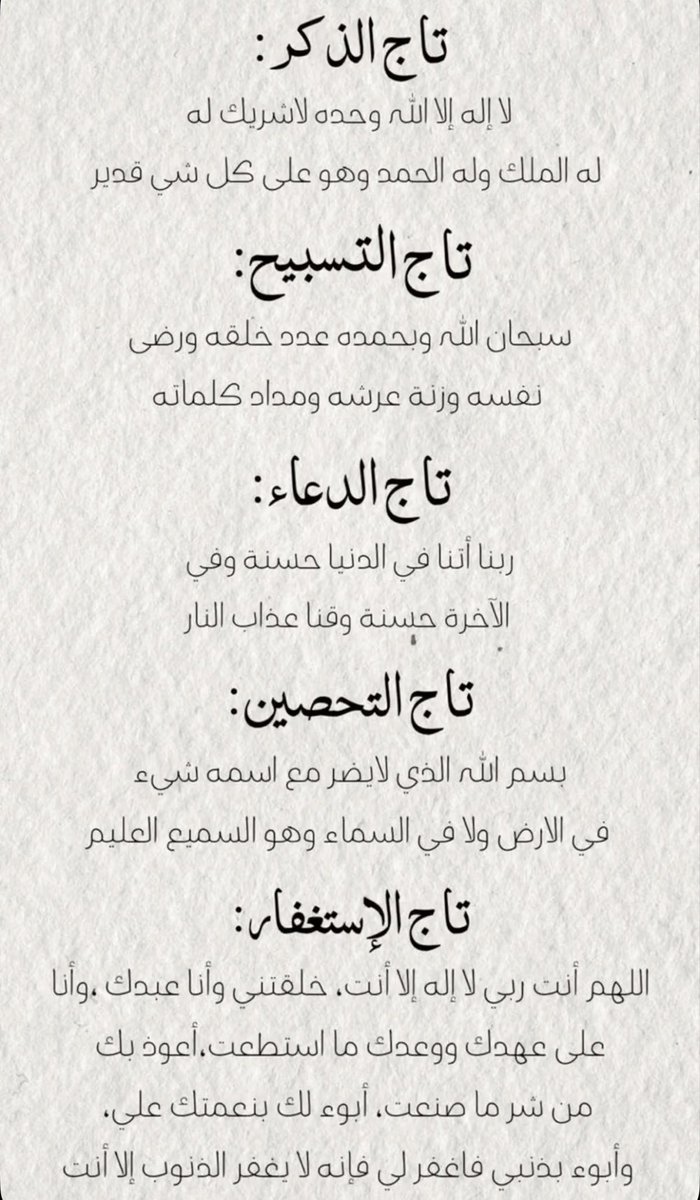 تاج الذكر:
لا إله إلا الله وحده لاشريك له
له الملك وله الحمد وهو على كل شي قدير
تاج التسبيح:
سبحان الله وبحمده عدد خلقه ورضى
نفسه وزنة عرشه ومداد كلماته
تاج الدعاء:
ربنا أتنا في الدنيا حسنة وفي
الآخرة حسنة وقنا عذاب النار
تاج التحصين:
بسم الله الذي لايضر مع اسمه شيء
في الارض ولا في السماء وهو السميع العليم
تاج الإستغفار:
اللهم أنت ربي لا إله إلا أنت، خلقتني وأنا عبدك ،وأنا
على عهدك ووعدك ما استطعت،أعوذ بك
من شر ما صنعت، أبوء لك بنعمتك علي،
وأبوء بذنبي فاغفر لي فإنه لا يغفر الذنوب إلا أنت